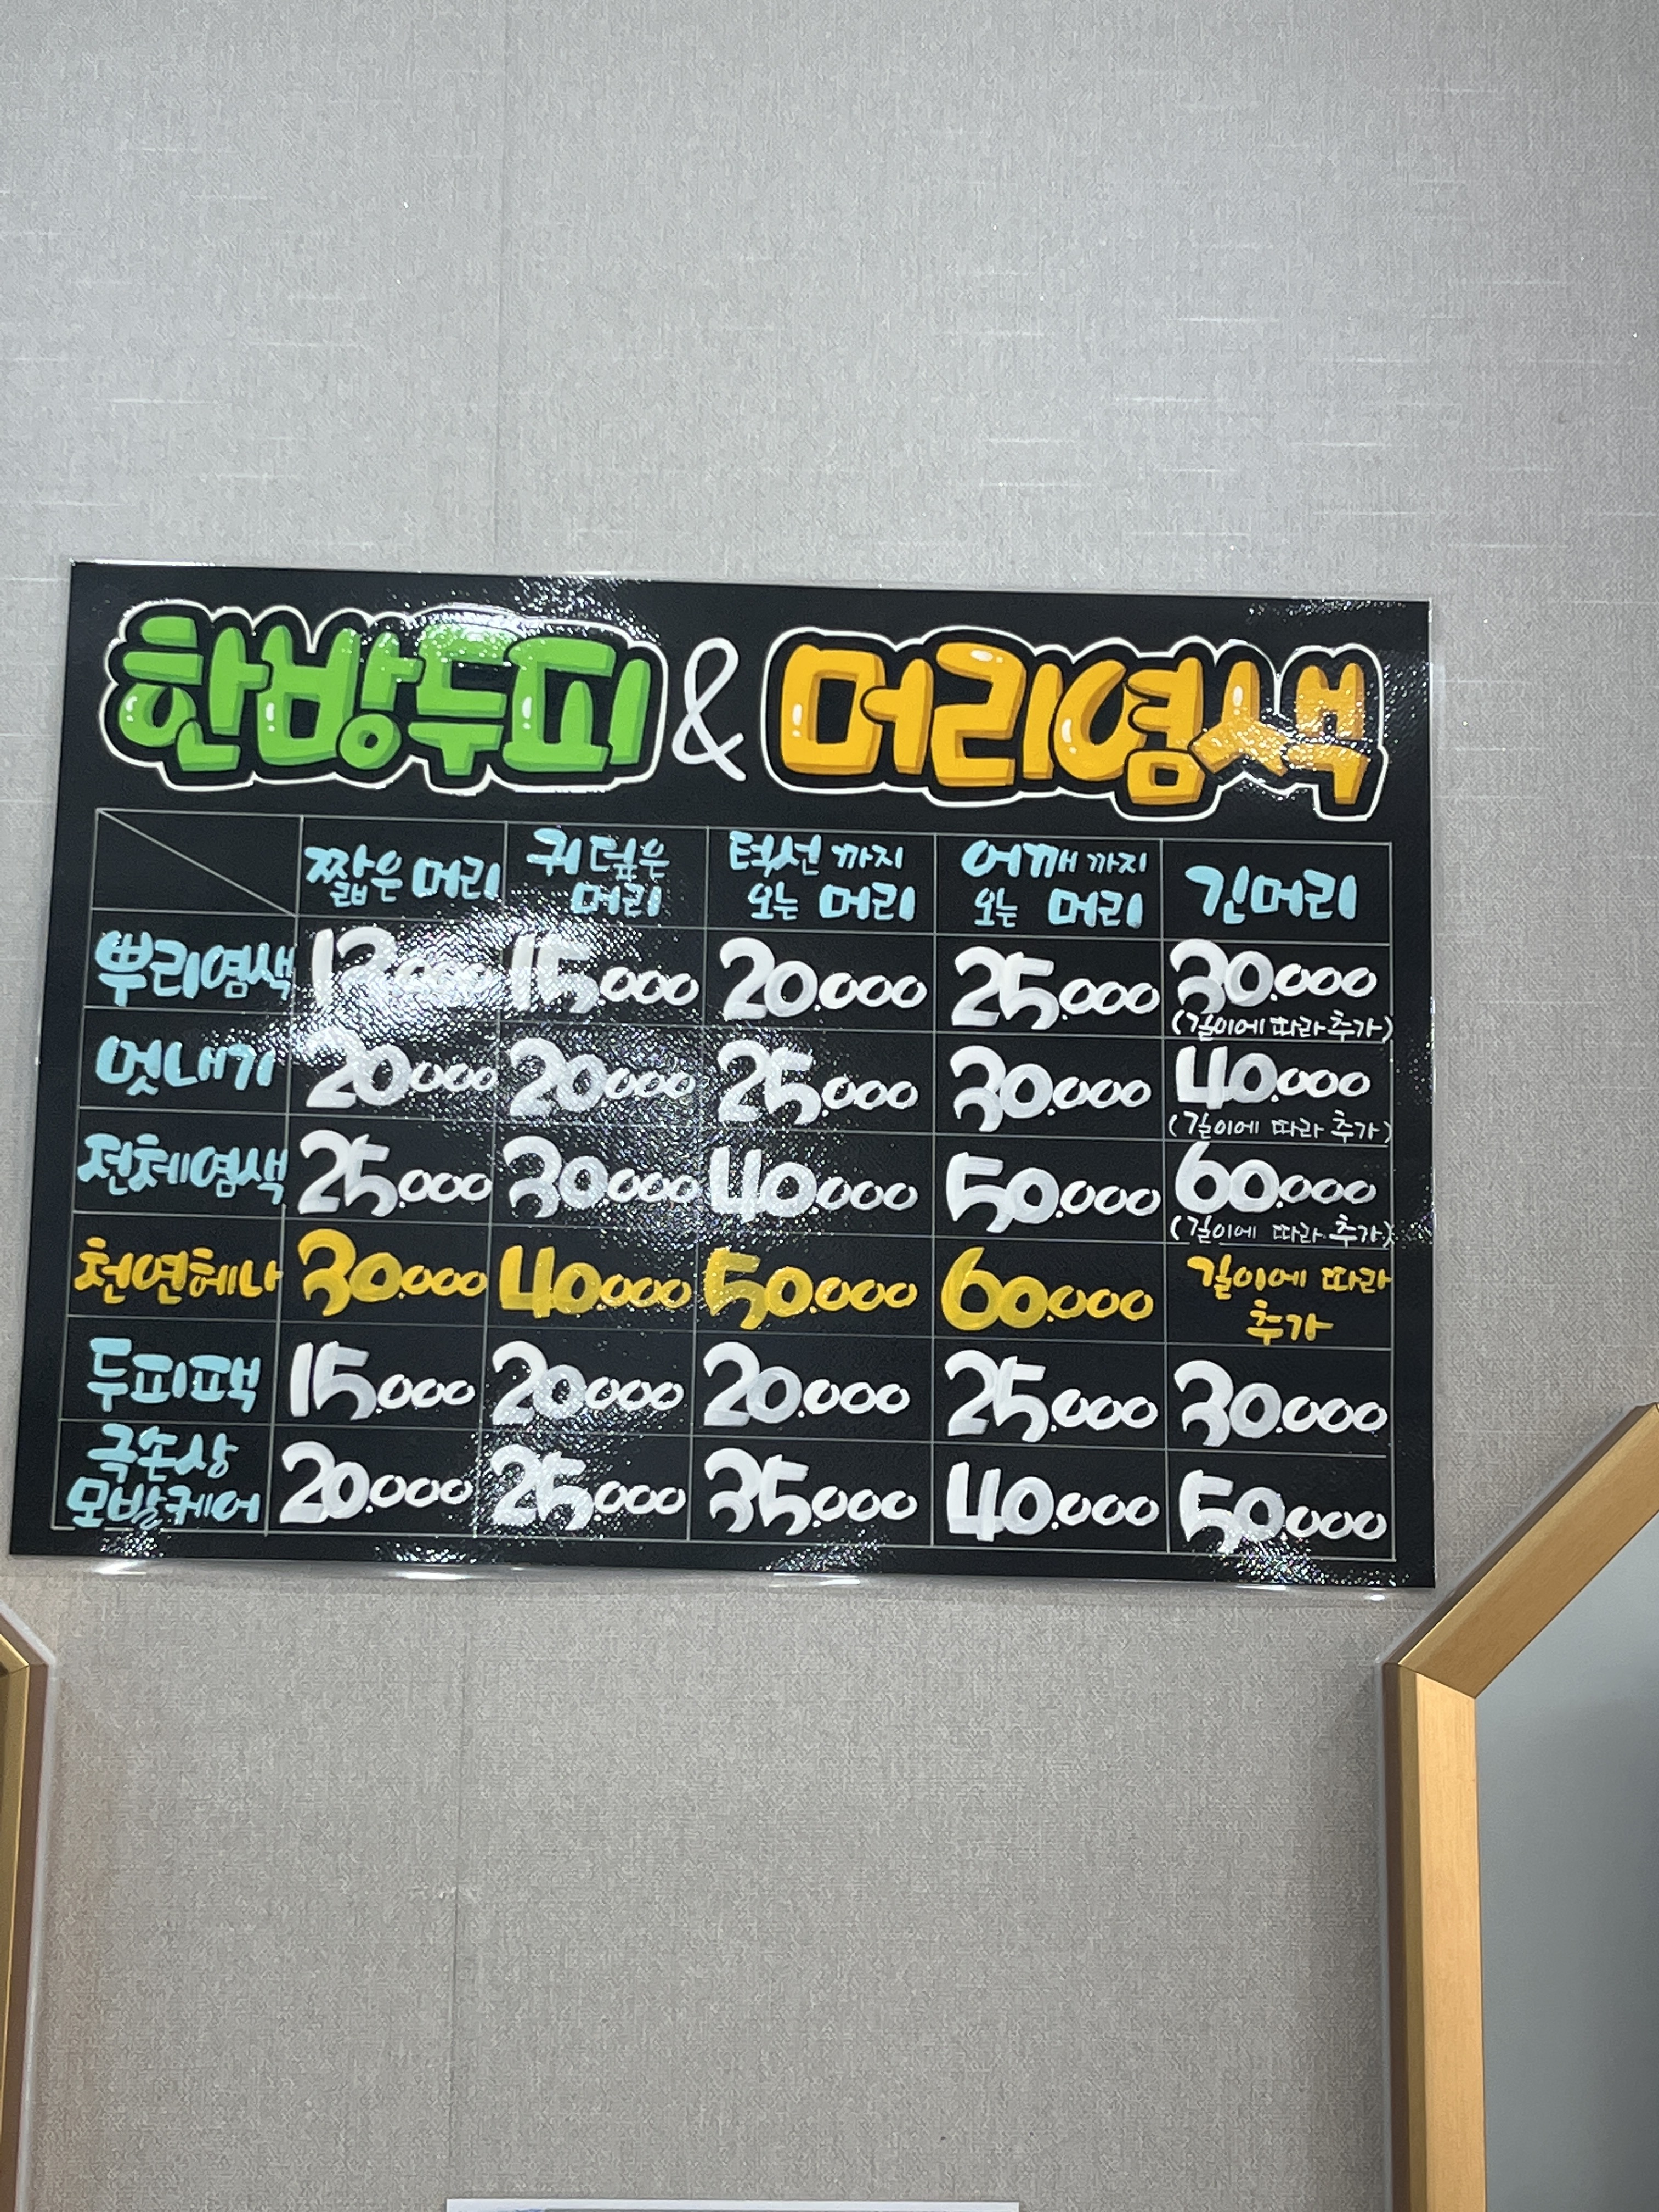 한방두피 & 머리염색
짧은 머리 귀 덮은 머리 턱선 까지 오는 머리 어깨 까지 오는 머리 긴머리
뿌리염색 12.000 15.000 20.000 25.000 30.000
(길이에 따라 추가)
멋내기 20.000 20.000 25.000 30.000 40.000
(길이에 따라 추가)
전체염색 25.000 30.000 40.000 50.000 60.000
(길이에 따라 추가)
천연헤나 30.000 40.000 50.000 60.000 길이에 따라 추가
두피팩 15.000 20.000 20.000 25.000 30.000
극손상 모발케어 20.000 25.000 35.000 40.000 50.000